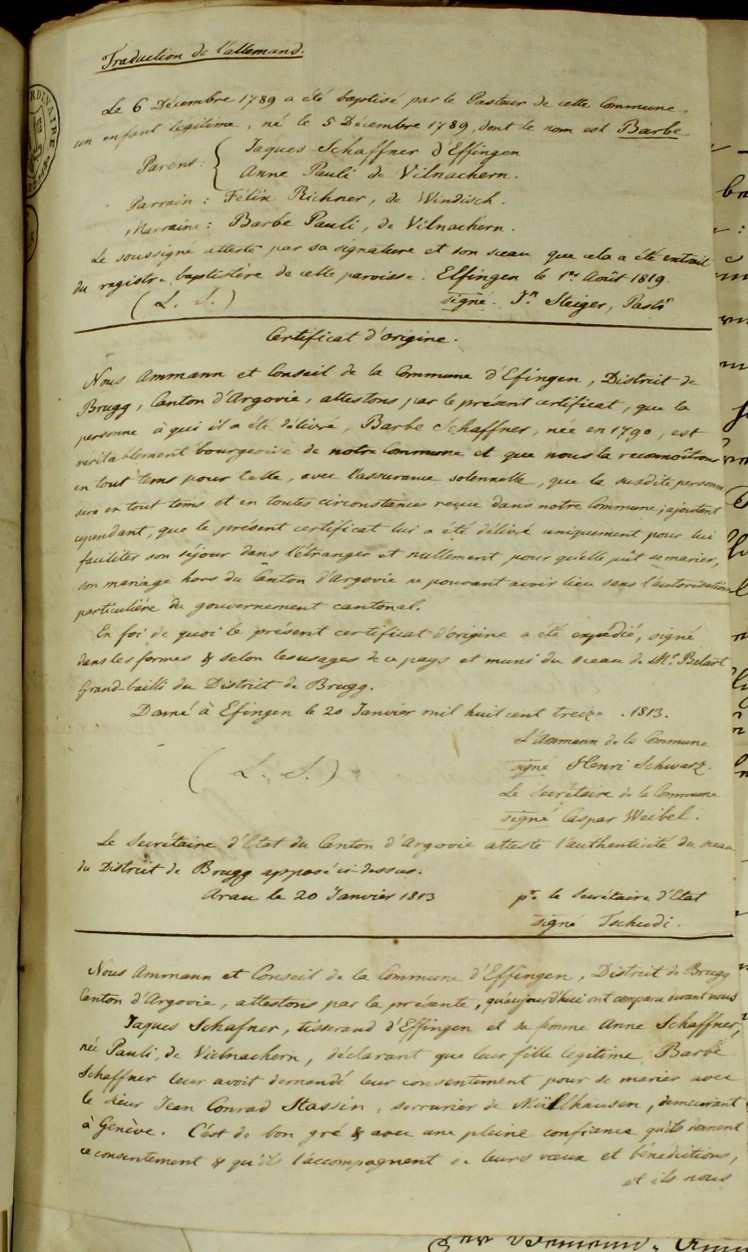 Traduction de l'allemand.
Le 6 Décembre 1789 a été baptisé par le Pasteur de cette Commune,
un enfant légitime, né le 5 Décembre 1789, dont le nom est Barbe
Parens: { Jaques Schaffner d'Effingen
Anne Pauli de Vilnachern.
Parrain: Félix Richner, de Windisch.
Marraine: Barbe Pauli, de Vilnachern.
Le soussigné atteste par sa signature et son sceau que cela a été extrait
du registre baptistère de cette paroisse. Elfingen le 1er Août 1819.
(L. S.) signé. Jn Steiger, Pastr
Certificat d'origine.
Nous Ammann et Conseil de la Commune d'Efingen, District de
Brugg, Canton d'Argovie, attestons par le présent certificat, que la
personne à qui il a été délivré, Barbe Schaffner, née en 1790, est
véritablement bourgeoise de notre Commune et que nous la reconnoîtrons
en tout tems pour telle, avec l'assurance solennelle, que la susdite personne
sera en tout tems et en toutes circonstances reçue dans notre Commune, ajoutant
cependant, que le présent certificat lui a été délivré uniquement pour lui
faciliter son séjour dans l'étranger et nullement pour qu'elle pût se marier,
son mariage hors du Canton d'Argovie ne pouvant avoir lieu sans l'autorisation
particulière du gouvernement cantonal.
En foi de quoi le présent certificat d'origine a été expédié, signé
dans les formes & selon les usages de ce pays et muni du sceau de Mr Belart
Grand-bailli du District de Brugg.
Donné à Efingen le 20 Janvier mil huit cent treize. 1813.
L'Ammann de la Commune
signé Henri Schwarz.
(L. S.)
Le Secrétaire de la Commune
signé Caspar Weibel.
Le Secrétaire d'Etat du Canton d'Argovie atteste l'authenticité du sceau
du District de Brugg apposé ci dessus.
Arau le 20 Janvier 1813 pr. le Secrétaire d'Etat
signé Tschudi.
Nous Ammann et Conseil de la Commune d'Effingen, District de Brugg
Canton d'Argovie, attestons par la présente, qu'aujourd'hui ont comparu devant nous
Jaques Schafner, tisserand d'Effingen et sa femme Anne Schaffner,
née Pauli, de Vielnachern, déclarant que leur fille légitime Barbe
Schaffner leur avoit demandé leur consentement pour se marier avec
le sieur Jean Conrad Stassin, serrurier de Mülhausen, demeurant
à Genève. C'est de bon gré & avec une pleine confiance qu'ils donnent
ce consentement & qu'ils l'accompagnent de leurs vœux et bénédictions,
et ils nous